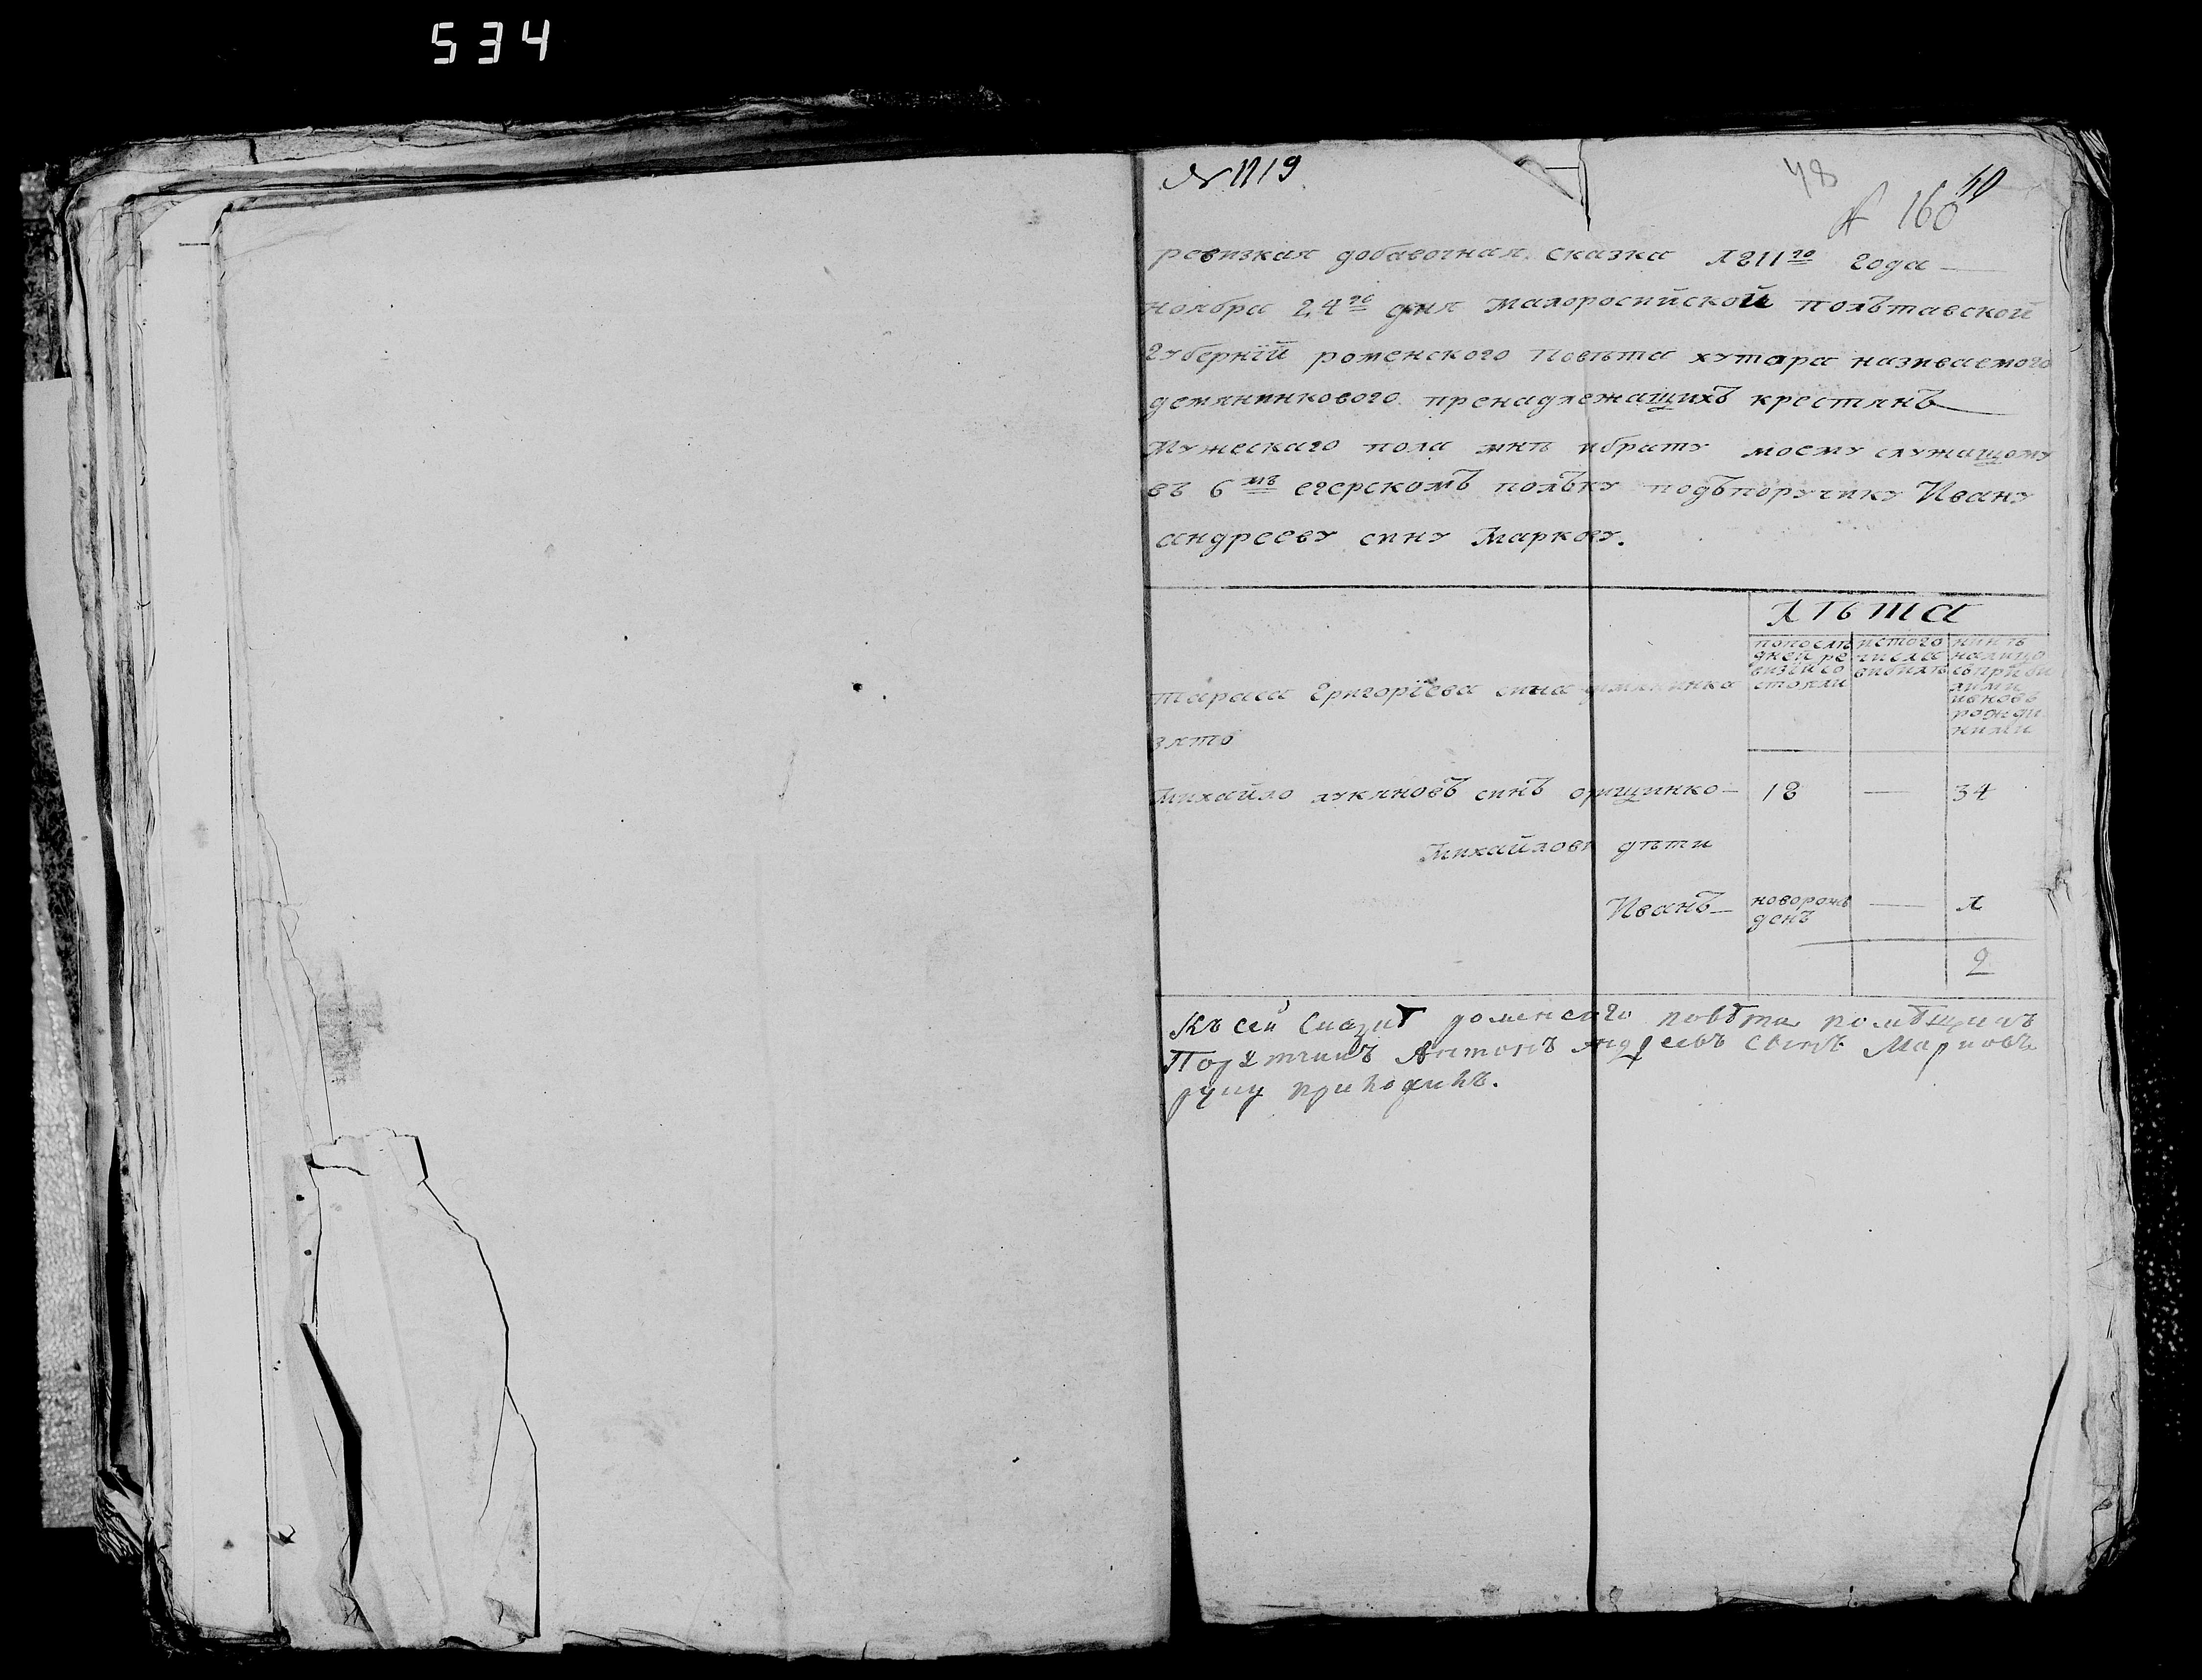 534
№ 1119
48
№ 160
50
ревизкая добавочная сказка 1811го года
ноября 24го дня малоросийской полътавской
губернїй роменского повѣта хутора називаемого
демяненкового пренадлежащихъ крестянъ
Мужескаго пола мнѣ ибрату моему служащому
въ 6мъ егерскомъ полъку подъпоручику Ивану
андрееву сину Маркову.
лѣта
попослѣдней ревизїи состояли
истого числа вибило
нинѣ налицо
тараса григорїева сина демяненка
зято
михайло лукяновъ синъ орищинко 18 — 34
Михайлови дѣти
Иванъ новорожденъ — 1
2
Къ сей сказкѣ роменского повѣта помѣщикъ
Порутчикъ Антонъ Андреевъ сынъ Марковъ
руку приложилъ.